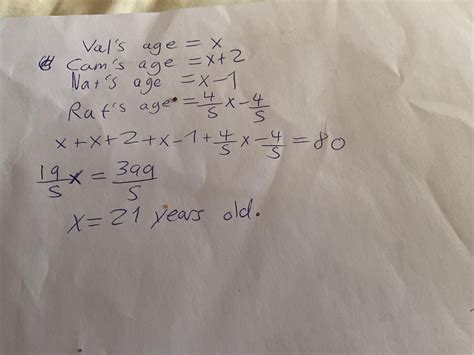 Val's age = x
Cam's age = x+2
Nat's age = x-1
Rat's age = 4/5 x - 4/5
x+x+2+x-1+4/5 x-4/5 = 80
19/5 x = 399/5
x = 21 years old.